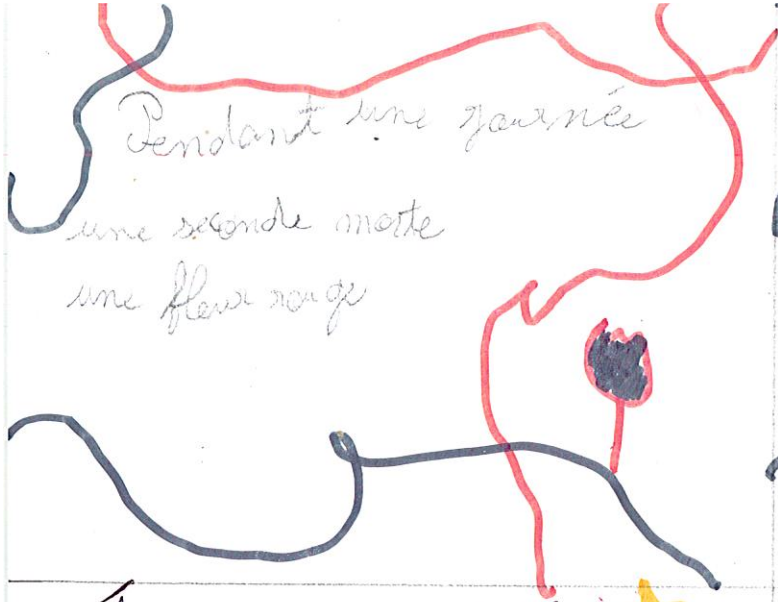 Pendant une journée
une seconde morte
une fleur rouge